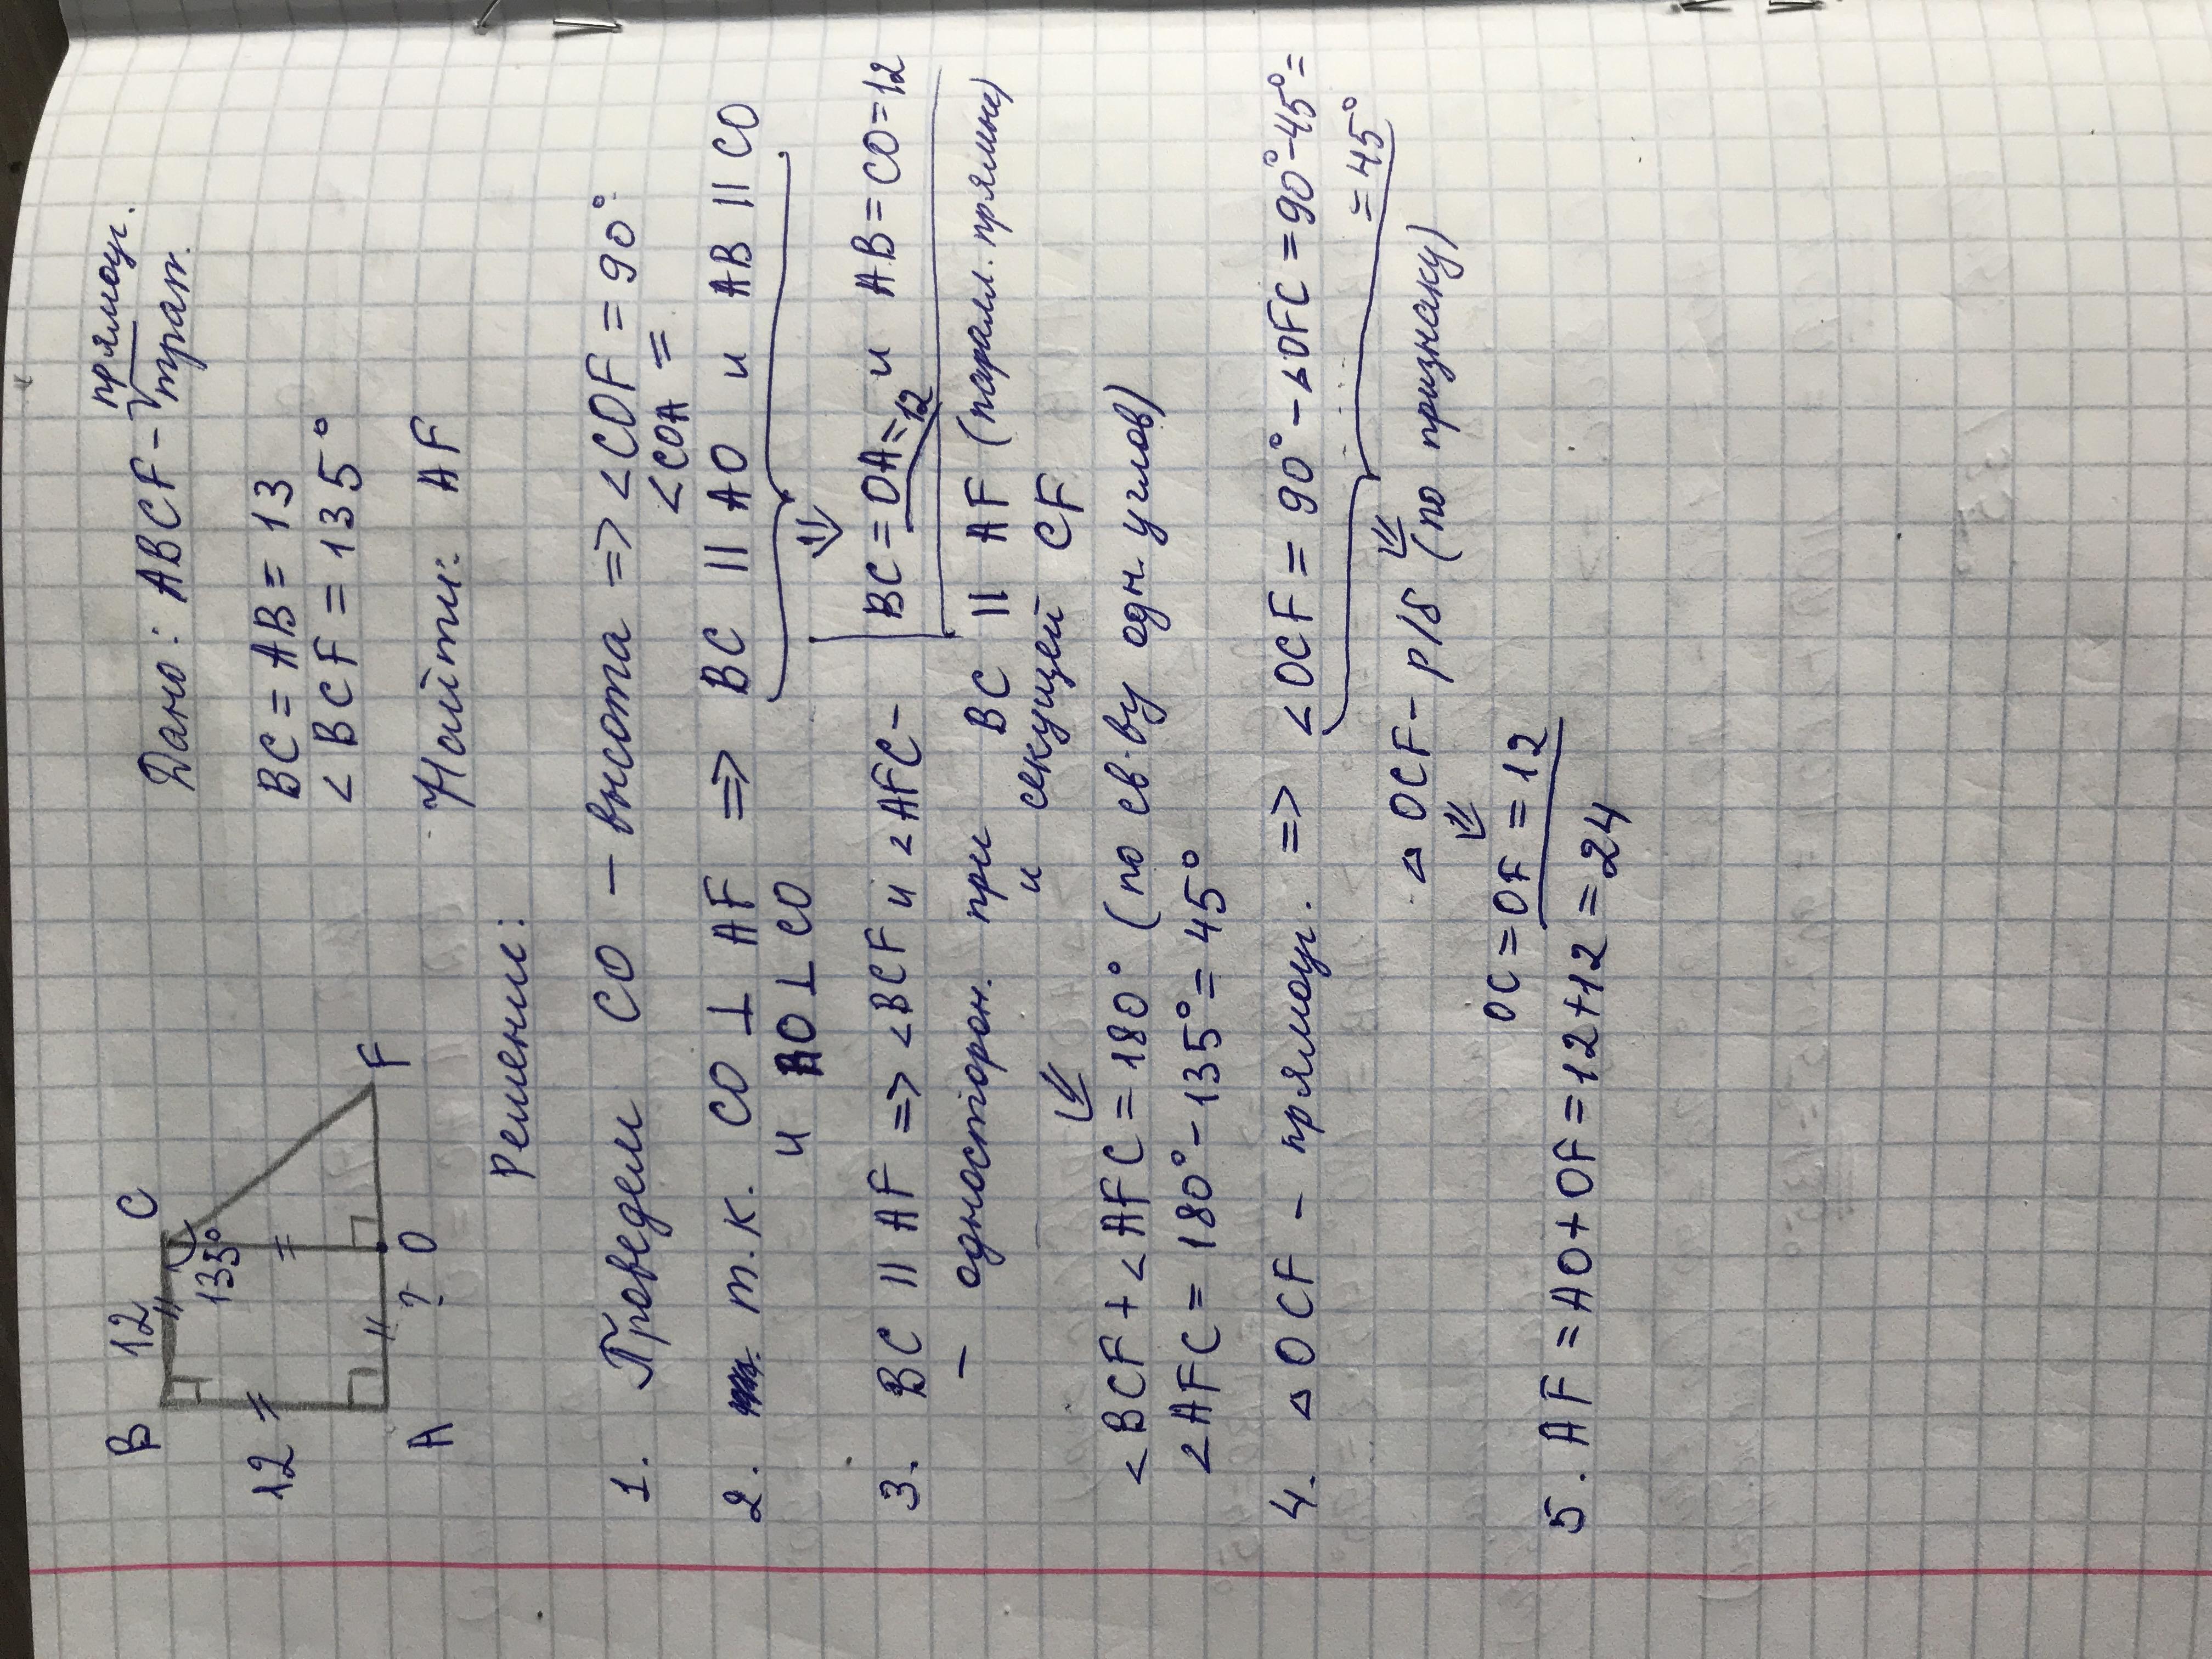 B 12 C
12 135°
A ? O F
Дано: ABCF – прямоуг. трап.
BC = AB = 13
<BCF = 135°
Найти: AF
Решение:
1. Проведем CO – высота => <COF = 90°
<COA =
2. т.к. CO ⊥ AF => BC || AO и AB || CO
и AO ⊥ CO
⇓
BC = OA = 12 и AB = CO = 12
3. BC || AF => <BCF и <AFC –
– односторон. при BC || AF (паралл. прямые)
и секущей CF
⇓
<BCF + <AFC = 180° (по св-ву одн. углов)
<AFC = 180° – 135° = 45°
4. △ OCF – прямоуг. => <OCF = 90° – <OFC = 90° – 45° =
= 45°
⇓
△ OCF – р/б (по признаку)
⇓
OC = OF = 12
5. AF = AO + OF = 12 + 12 = 24